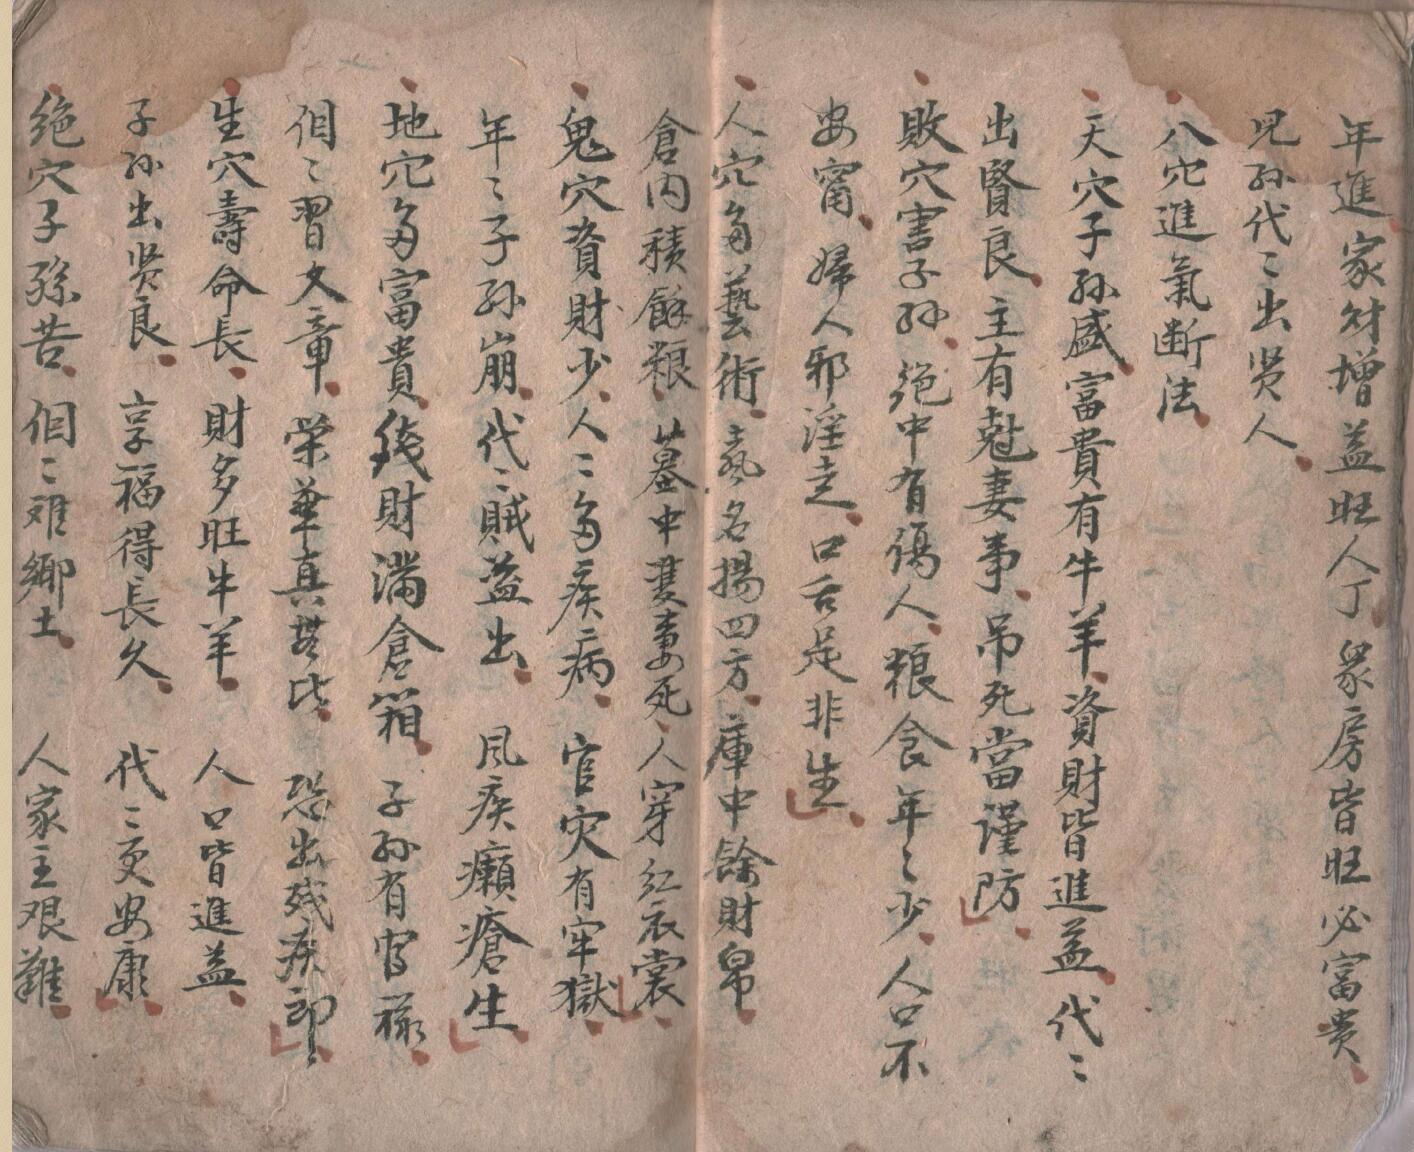 年進家财增益旺人丁衆房皆旺必富贵
児孙代〻出贤人
八穴進氣断法
天穴子孙盛富貴有牛羊資財皆進益代〻
出賢良主有尅妻事吊死當谨防
敗穴害子孙绝中有傷人粮食年〻少人口不
安甯婦人邪淫走口舌是非生
人穴多藝術藝名揚四方庫中餘財帛
倉内積餘粮墓中妻死人穿红衣裳
鬼穴資財少人〻多疾病官灾有牢獄
年〻子孙崩代〻賊益出风疾癩瘡生
地穴多富貴錢財满倉箱子孙有官禄
個〻習文章榮華真恐出残疾郎
生穴壽命長財多旺牛羊人口皆進益
子孙出贤良享福得長久代〻更安康
绝穴子孫苦個〻难鄉土人家主艰難